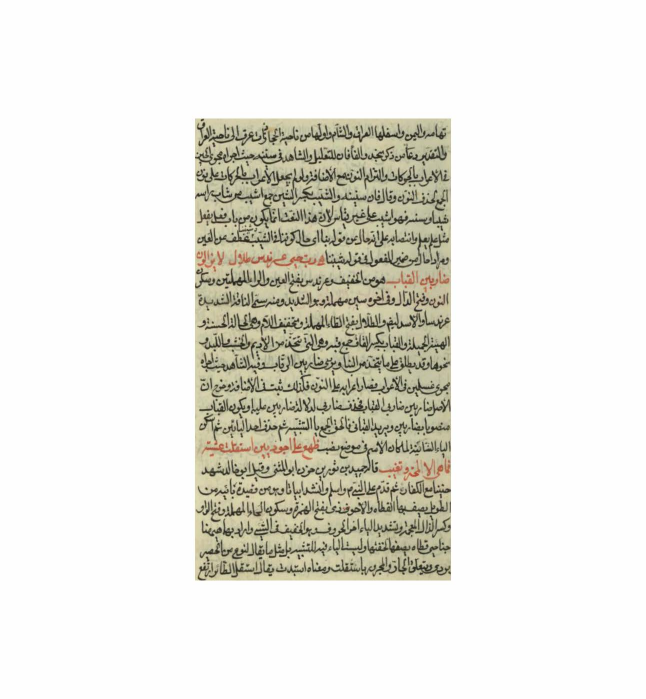 تهامة واليمن واسفلها العراق والشام واولها من ناحية الحجاز ذات عرق الى ناحية العراق
والتقدير وعاس ذكر نجد والفافان للتعليل والشاهد في سنينه حيث اجراه مجرى الحين
في الاعراب بالحركات والتزام النون مع الاضافة ولو لم يجعل الاعراب بالحركات على نون
الجمع لحذف النون وقال فان سنيه والشيب بكسر الشين جمع اشيب من شاب راسه
شيبا وشيبة فهو اشيب على غير قياس لان هذا النعت انما يكون من باب فعل يفعل
مثل علم يعلم وانتصابه على انه حال من قوله بنا اي حال كوننا في الشيب
ومردا حال من ضمير المفعول في قوله شيبننا رب حي عرندس ذي طلال لا يزالون
ضاربين القباب هو من الخفيف وعرندس بفتح العين والراء المهملتين وسكون
النون وفتح الدال وفي آخره سين مهملة وهو الشديد ومنه سمى الناقة الشديدة
عرندسا والاسد ايضا والطلال بفتح الطاء المهملة وتخفيف اللام وهي الحالة الحسنة و
الهيئة الجميلة والقباب بكسر القاف جمع قبة وهي التي تتخذ من الاديم والخشب واللبد و
نحوها وقد يطلق على ما يتخذ من البناء ويروى ضاربين الرقاب وفيه الشاهد حيث اجراه
مجرى غسلين في الاعراب فصار اعرابه على النون فلذلك ثبت في الاضافة وخرج ان
الاصل ضاربين ضاربي القباب فحذف ضاربي لدلالة ضاربين عليه او يكون القباب
منصوبا بضاربين ويريد القبابي فالحق الجمع ياء النسبة ثم حذف احد اليائين ثم اسكن
الياء الثانية لمكان الاسم في موضع نصب على احوذيين استقلت عشية
فما هي الا لمحة وتغيب قاله حميد بن ثور بن حزن ابو المثنى وقيل ابو خالد شهد
حنينا مع الكفار ثم قدم على النبي م واسلم وانشد ابياتا وهو من قصيدة بائية من
الطويل يصف بها القطاة والاحوذي بفتح الهمزة وسكون الحاء المهملة وفتح الواو
وكسر الذال المعجمة وتشديد الياء آخر الحروف هو الخفيف في الشي واراد بها ههنا
جناحي قطاة يصفها لخفتها وليست الياء فيه للنسبة بل مثل ما يقال
ويتعلق الجار والمجرور باستقلت ومعناه استبدت يقال استقل الطائر ارتفع